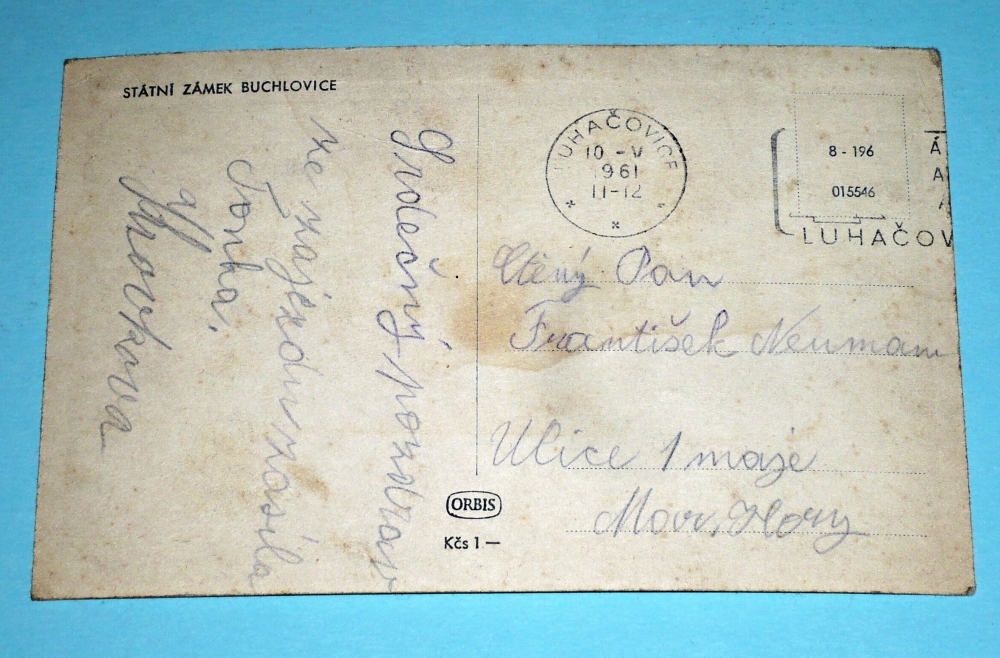 STÁTNÍ ZÁMEK BUCHLOVICE
Srdečný pozdrav
ze zájezdu zasílá
Tonka.
LUHAČOVICE
10 -V
1961
11-12
8 - 196
015546
LUHAČOV
Ctěný Pan
František Neuman
Ulice 1 maje
Mor. Hory
ORBIS
Kčs 1 —